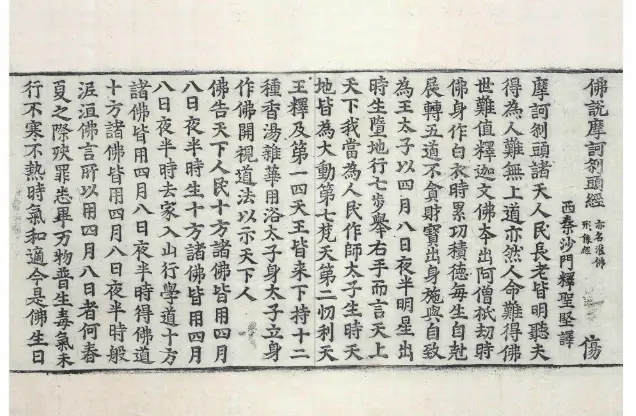 佛說摩訶刹頭經 亦名灌佛形像經 傷
西秦沙門釋聖堅譯
摩訶刹頭諸天人民長老皆明聽夫
得為人難無上道亦然人命難得佛
世難值釋迦文佛本出阿僧祇劫時
佛身作白衣時累功積德每生自尅
展轉五道不貪財寶出身施與自致
為王太子以四月八日夜半明星出
時生墮地行七步舉右手而言天上
天下我當為人民作師太子生時天
地皆為大動第七梵天第二忉利天
王釋及第一四天王皆來下持十二
種香湯雜華用浴太子身太子立身
作佛開視道法以示天下人
佛告天下人民十方諸佛皆用四月
八日夜半時生十方諸佛皆用四月
八日夜半時去家入山行學道十方
諸佛皆用四月八日夜半時得佛道
十方諸佛皆用四月八日夜半時般
泥洹佛言所以用四月八日者何春
夏之際殃罪悉畢万物普生毒氣未
行不寒不熱時氣和適今是佛生日